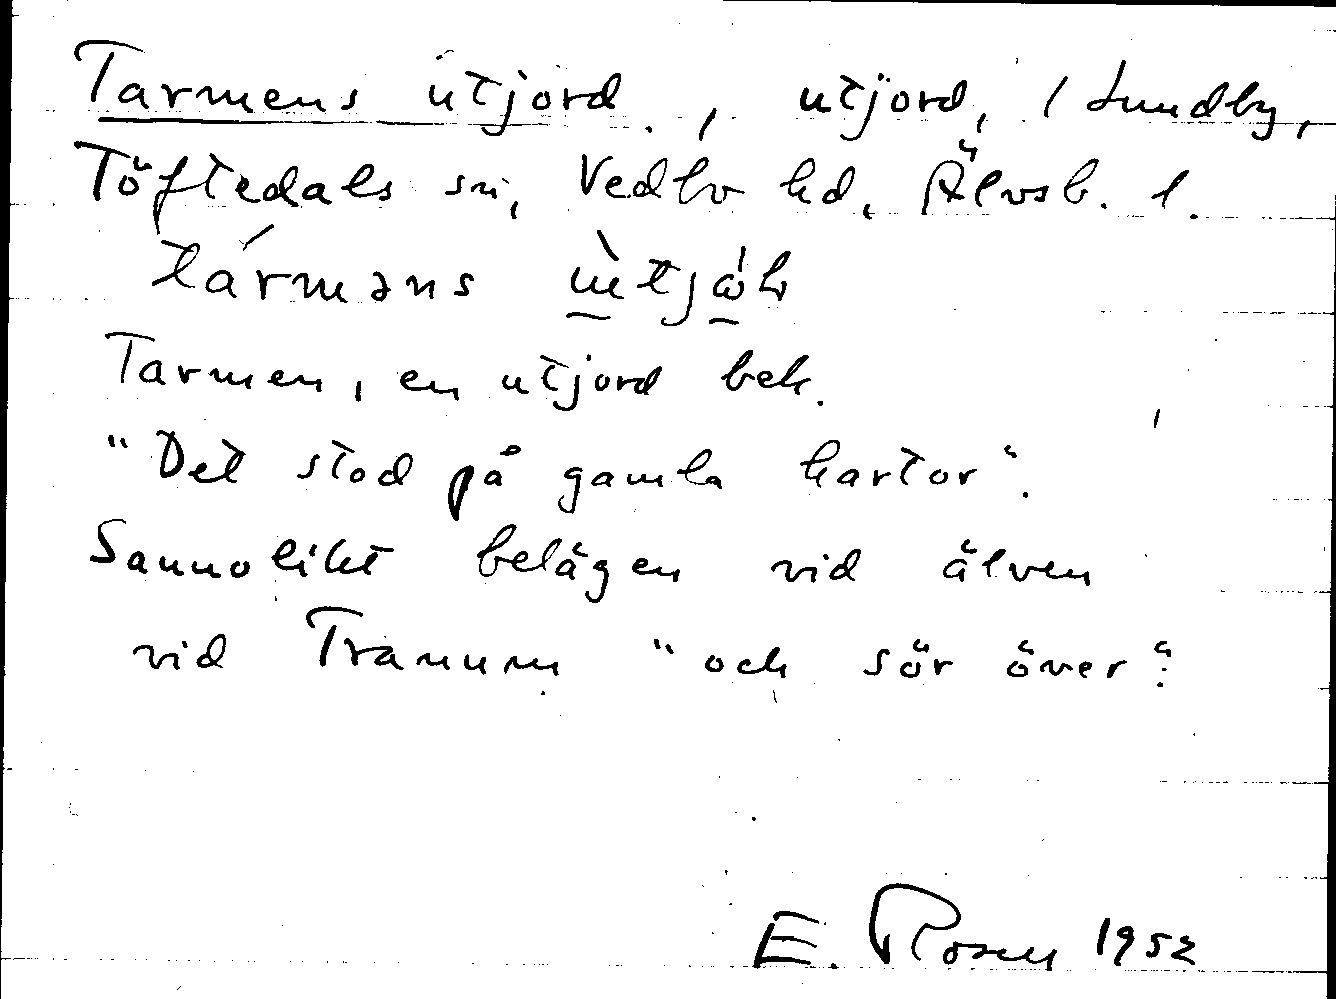 Tarmens utjord, utjord, / Lundby,
Töftedals sn, Vedbo hd, Älvsb. l.
tármәns ù̠tjó̠ƚ
Tarmen, en utjord bek.
"Det stod på gamla kartor".
Sannolikt belägen vid älven
vid Tranum "och sör över".
E. Rosen 1952